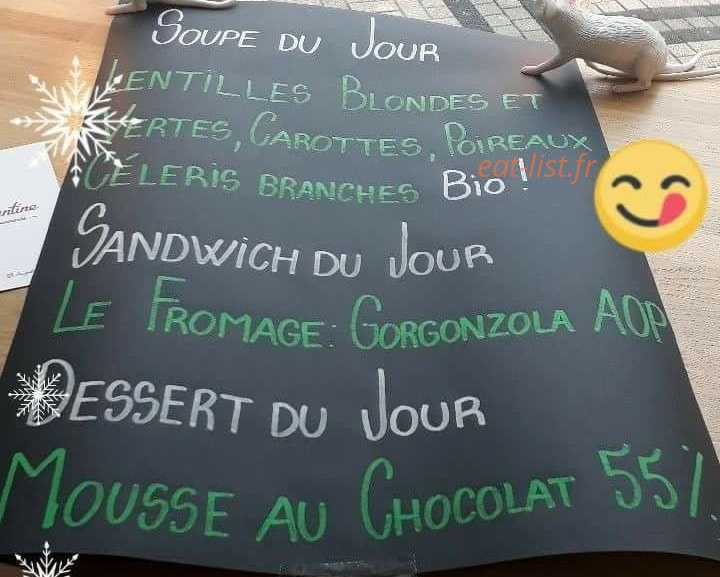 Soupe du Jour
Lentilles Blondes et
Vertes, Carottes, Poireaux
eat-list.fr
Céleris branches Bio !
Sandwich du Jour
Le Fromage : Gorgonzola AOP
Dessert du Jour
Mousse au Chocolat 55%